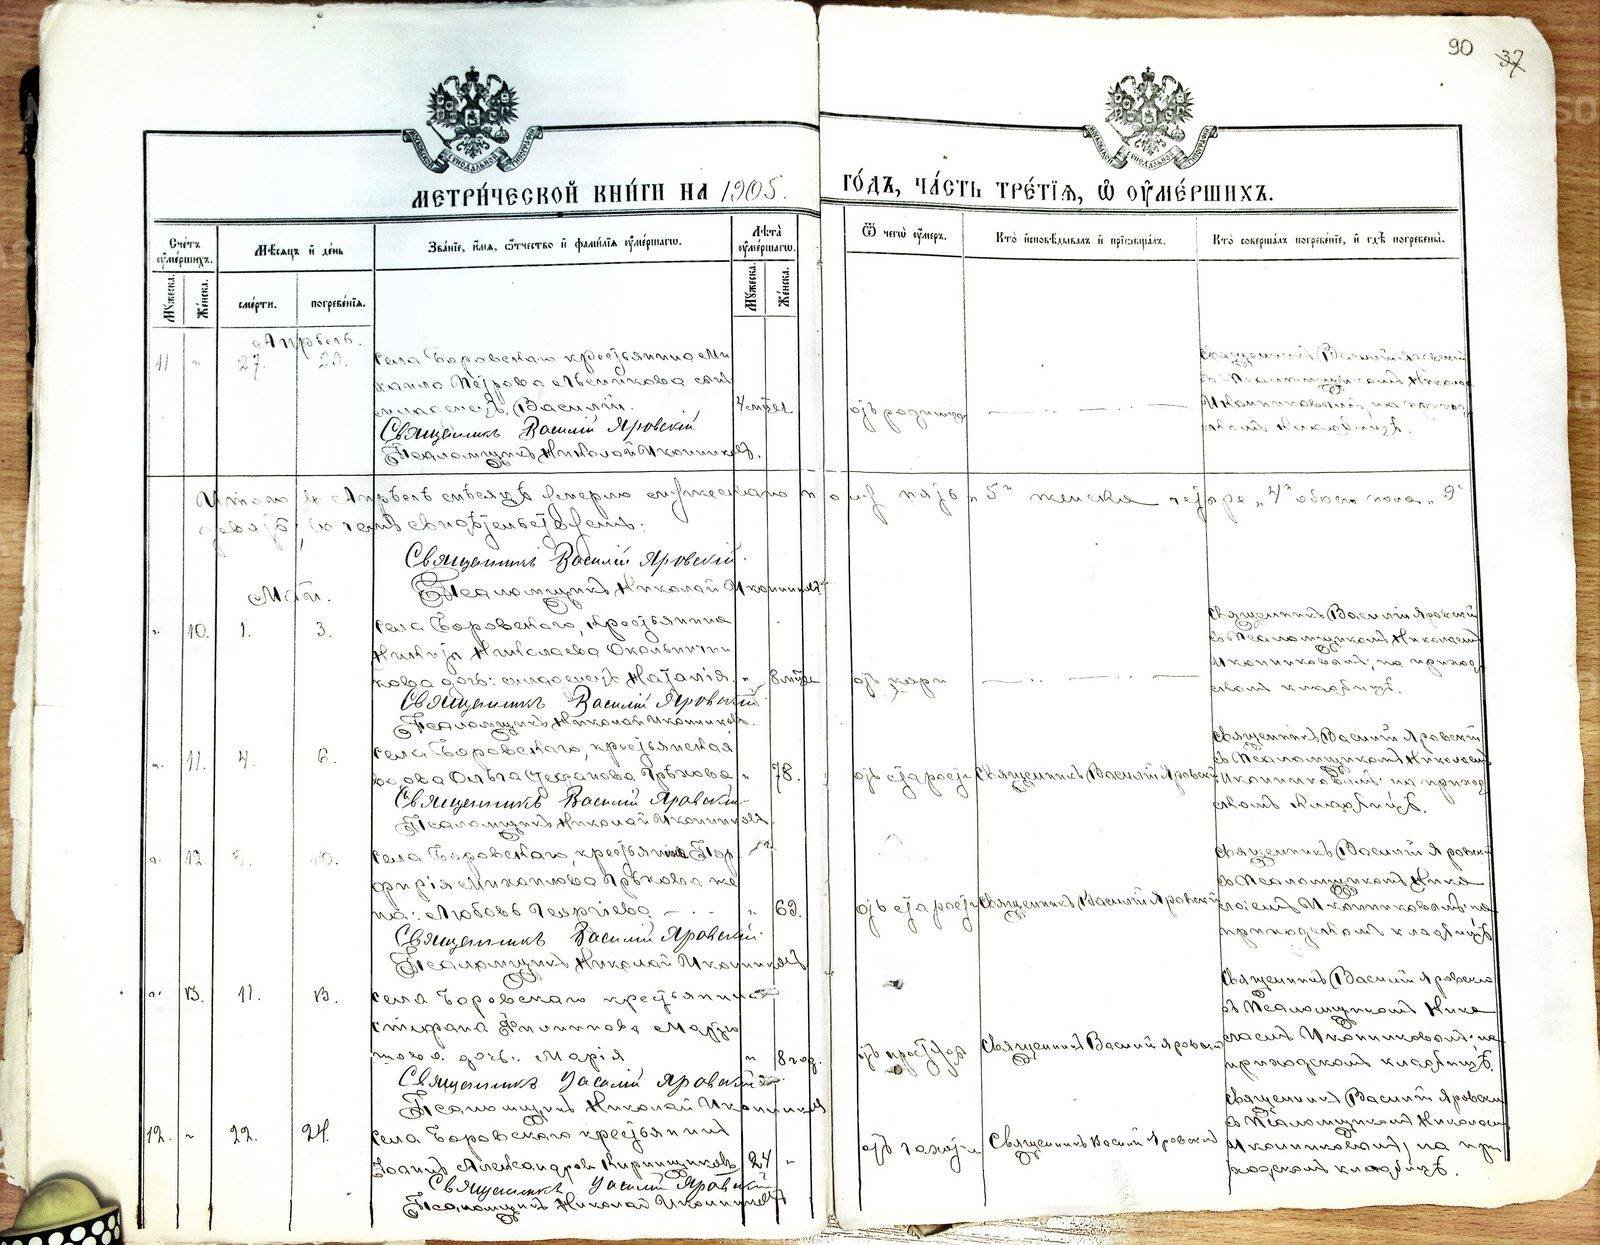 90 37
МОСКОВСКОЙ СѴНОДАЛЬНОЙ ТИПОГРАФІИ
МОСКОВСКОЙ СѴНОДАЛЬНОЙ ТИПОГРАФІИ
МЕТРИ́ЧЕСКОЙ КНИ́ГИ НА 1905.
ГО́ДЪ, ЧА́СТЬ ТРЕ́ТІѦ, Ѡ҆ ОУ҆МЕ́РШИХЪ.
Сче́тъ оу҆ме́ршихъ.
Мѣ́сѧцъ и҆ де́нь
Зва́нїе, и҆́мѧ, ѻ҆́тчество и҆ фами́лїѧ оу҆ме́ршагѡ.
Лѣ́та оу҆ме́ршагѡ.
Ѿ чегѡ̀ оу҆́меръ.
Кто̀ и҆сповѣ́дывалъ и҆ прїѡбща́лъ.
Кто̀ соверша́лъ погребе́нїе, и҆ гдѣ̀ погребены̀.
Мꙋ́жеска. Же́нска.
сме́рти. погребе́нїѧ.
Мꙋ́жеска. Же́нска.
Апрѣль.
11 " 27. 29.
села Боровскаго крестьянина Ми
хаила Петрова сынъ
младенецъ Василій.
Священникъ Василій Яровскій
Псаломщикъ Николай Иконниковъ.
отъ родимца
Священникъ Василій Яровскій
съ Псаломщикомъ Николаемъ
Иконниковымъ, на приход
скомъ кладбищѣ.
Итого въ Апрѣлѣ мѣсяцѣ умерло мужескаго пола пять "5" женска четыре "4" обоего пола "9"
девять, въ чемъ свидѣтельствуемъ:
Священникъ Василій Яровскій.
Псаломщикъ Николай Иконниковъ
Май.
" 10. 1. 3.
села Боровскаго, крестьянина
Никиты Николаева Окольнични
кова дочь: младенецъ Наталія. "
Священникъ Василій Яровскій
Псаломщикъ Николай Иконниковъ.
отъ кори
Священникъ Василій Яровскій
съ Псаломщикомъ Николаемъ
Иконниковымъ, на приход
скомъ кладбищѣ.
" 11. 4. 6.
села Боровскаго, крестьянская
вдова Ольга Степанова Грѣхова " 78.
Священникъ Василій Яровскій
Псаломщикъ Николай Иконниковъ
отъ старости
Священникъ Василій Яровскій
Священникъ Василій Яровскій
съ Псаломщикомъ Николаемъ
Иконниковымъ на приход
скомъ кладбищѣ.
" 12 8. 10.
села Боровскаго, крестьянина Пор
фирія Михайлова Грѣхова же
на: Любовь Георгіева " 69.
Священникъ Василій Яровскій.
Псаломщикъ Николай Иконниковъ
отъ старости
Священникъ Василій Яровскій
Священникъ Василій Яровскій
съ Псаломщикомъ Нико
лаемъ Иконниковымъ на
приходскомъ кладбищѣ
" 13. 11. 13.
села Боровскаго крестьянина
Стефана Филиппова
дочь: Марія " 8 год.
Священникъ Василій Яровскій
Псаломщикъ Николай Иконниковъ
отъ простуды
Священникъ Василій Яровскій
Священникъ Василій Яровскій
съ Псаломщикомъ Нико
лаемъ Иконниковымъ, на
приходскомъ кладбищѣ.
12. " 22. 24.
села Боровскаго крестьянинъ
Іоаннъ Александровъ Кирпищиковъ 24 "
Священникъ Василій Яровскій
Псаломщикъ Николай Иконниковъ
отъ чахотки
Священникъ Василій Яровскій
Священникъ Василій Яровскій
съ Псаломщикомъ Николаемъ
Иконниковымъ, на при
ходскомъ кладбищѣ.